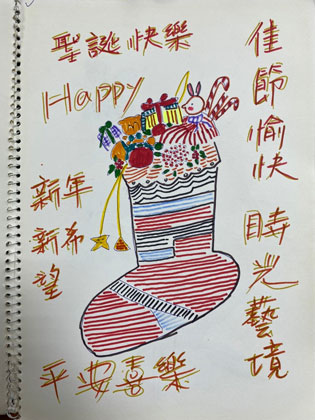 聖誕快樂
Happy
新年
新希
望
平安喜樂
佳節愉快
時光藝境